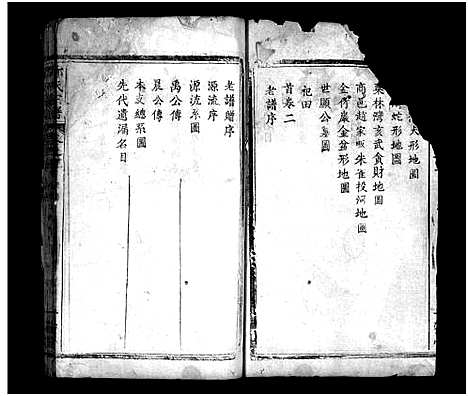 犬形地圖
蛇形地圖
栗林灣亥武貪財地圖
商邑趙家畈朱雀投河地圖
金何嶺金盆形地圖
世顯公墓圖
祀田
首卷二
老譜序
老譜贈序
源流序
源流系圖
禹公傳
晁公傳
本支總系圖
先代遺漏名目